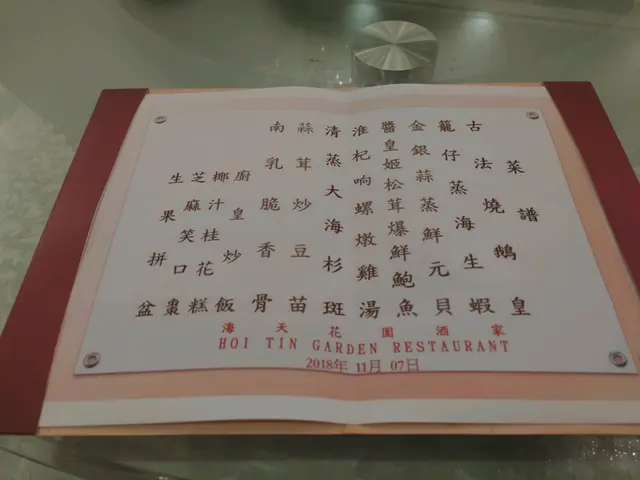 菜譜
古法燒鵝皇
籠仔蒸海生蝦
金銀蒜蒸鮮元貝
醬皇姬松茸爆鮮鮑魚
淮杞响螺燉雞湯
清蒸大海杉斑
蒜茸炒豆苗
南乳脆香骨
廚皇炒飯
椰汁桂花糕
芝麻笑口棗
生果拼盆
海天花園酒家
HOI TIN GARDEN RESTAURANT
2018年 11月 07日